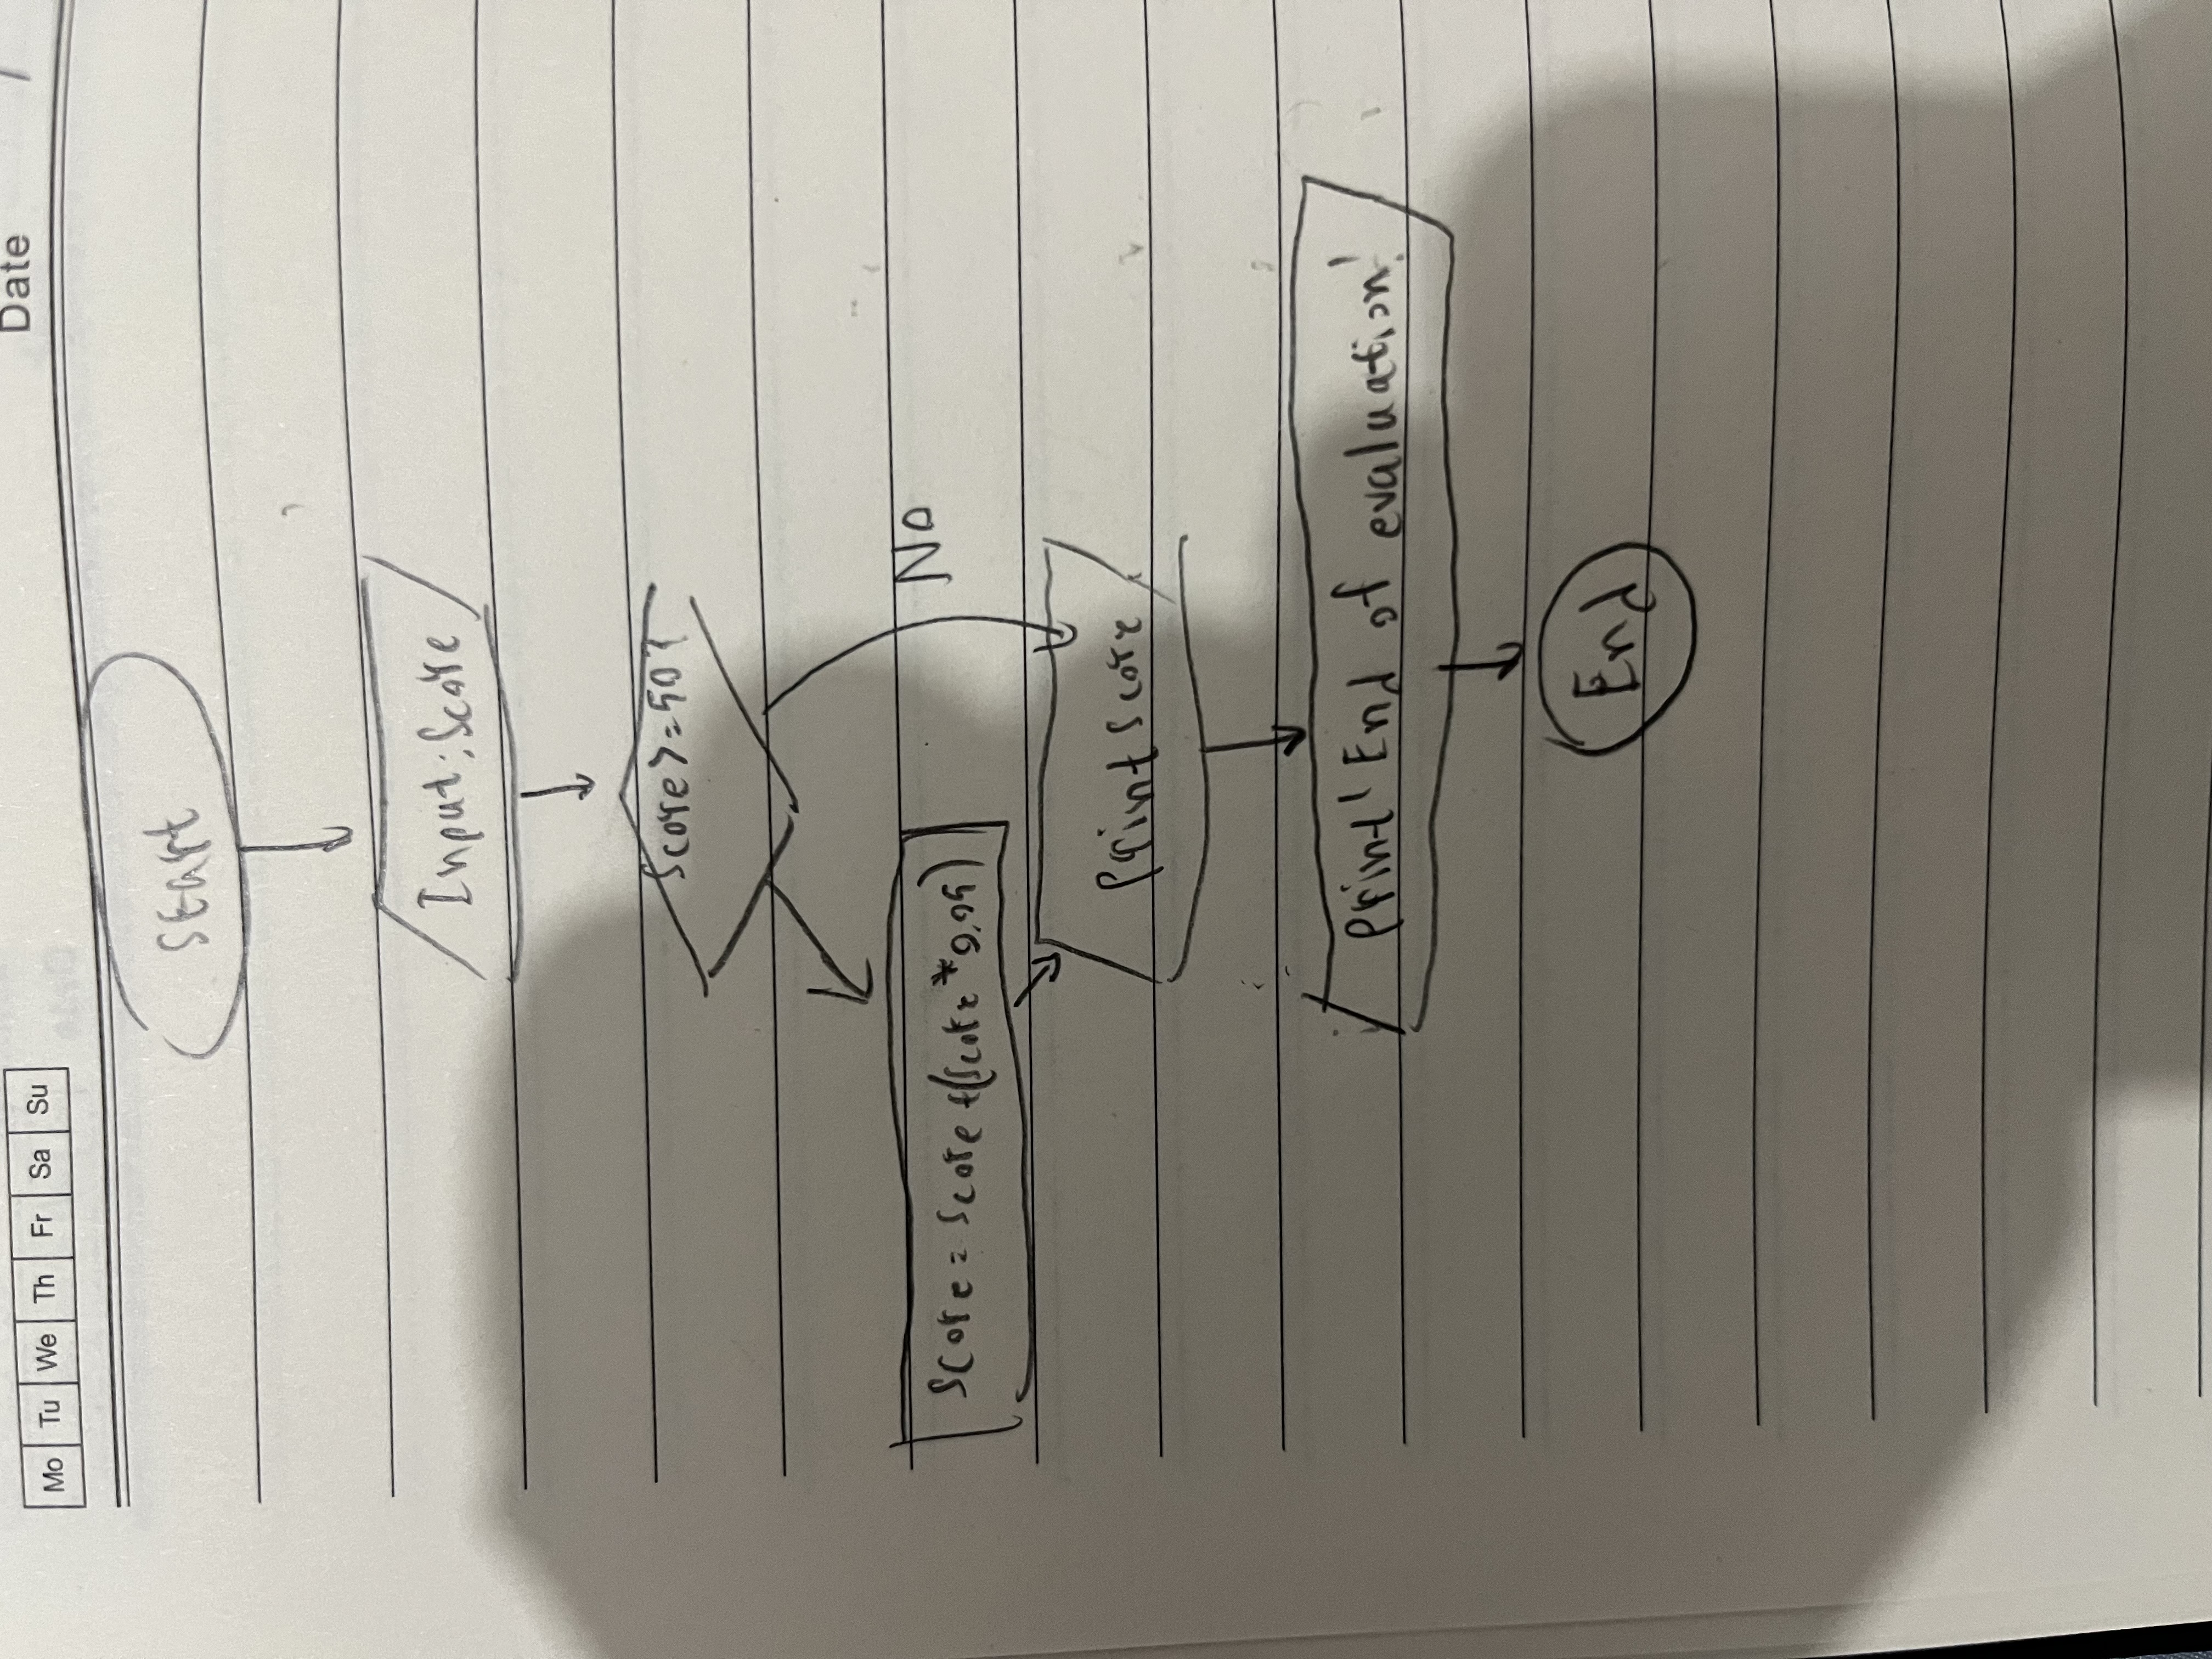 Mo Tu We Th Fr Sa Su
Date /
Start
Input: Score
Score >= 50?
Score = Score + (Score * 0.05)
No
Print Score
Print 'End of evaluation'
End